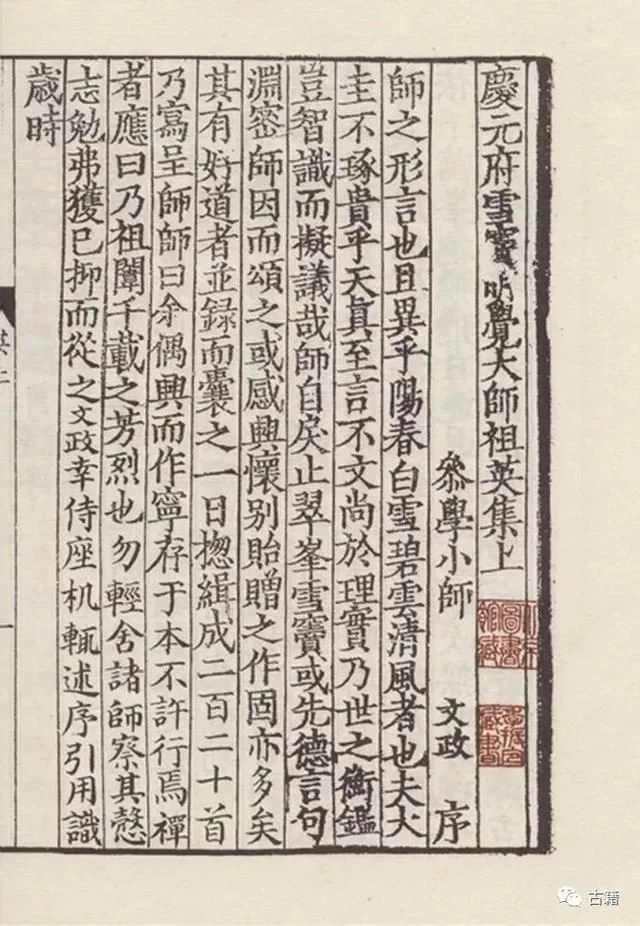 慶元府雪竇明覺大師祖英集上
叅學小師 文政 序
師之形言也且異乎陽春白雪碧雲清風者也夫大
圭不琢貴乎天真至言不文尚於理實乃世之衡鑑
豈智識而擬議哉師自戾止翠峯雪竇或先德言句
淵密師因而頌之或感興懷别貽贈之作固亦多矣
其有好道者並録而囊之一日揔緝成二百二十首
乃寫呈師師曰余偶興而作寧存于本不許行焉禪
者應曰乃祖闡千載之芳烈也勿輕舍諸師察其慤
志勉弗獲已抑而從之文政幸侍座机輒述序引用識
歲時
一
北京
圖書
館藏
藏書
古籍